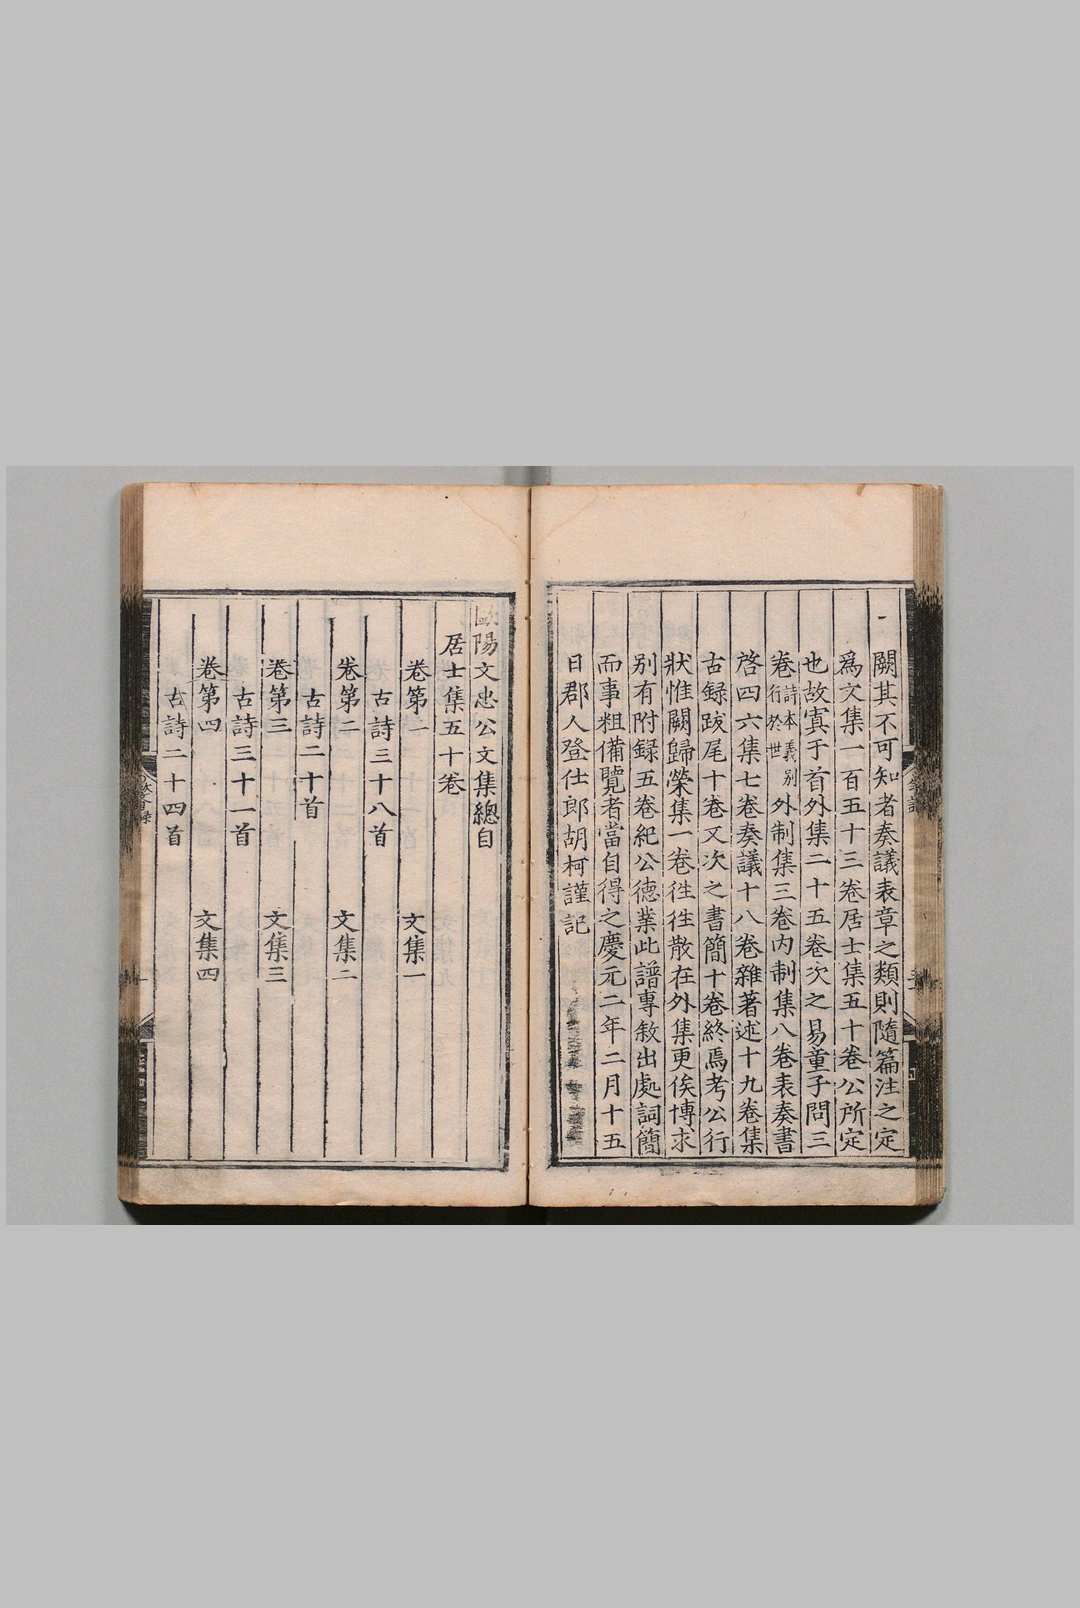 闕其不可知者奏議表章之類則隨篇注之定
爲文集一百五十三卷居士集五十卷公所定
也故寘于首外集二十五卷次之易童子問三
卷詩本義別行於世外制集三卷内制集八卷表奏書
啓四六集七卷奏議十八卷雜著述十九卷集
古録跋尾十卷又次之書簡十卷終焉考公行
狀惟闕歸榮集一卷徃徃散在外集更俟博求
别有附録五卷紀公德業此譜專敘出處詞簡
而事粗備覽者當自得之慶元二年二月十五
日郡人登仕郎胡柯謹記
歐陽文忠公文集總目
居士集五十卷
卷第一 文集一
古詩三十八首
卷第二 文集二
古詩二十首
卷第三 文集三
古詩三十一首
卷第四 文集四
古詩二十四首